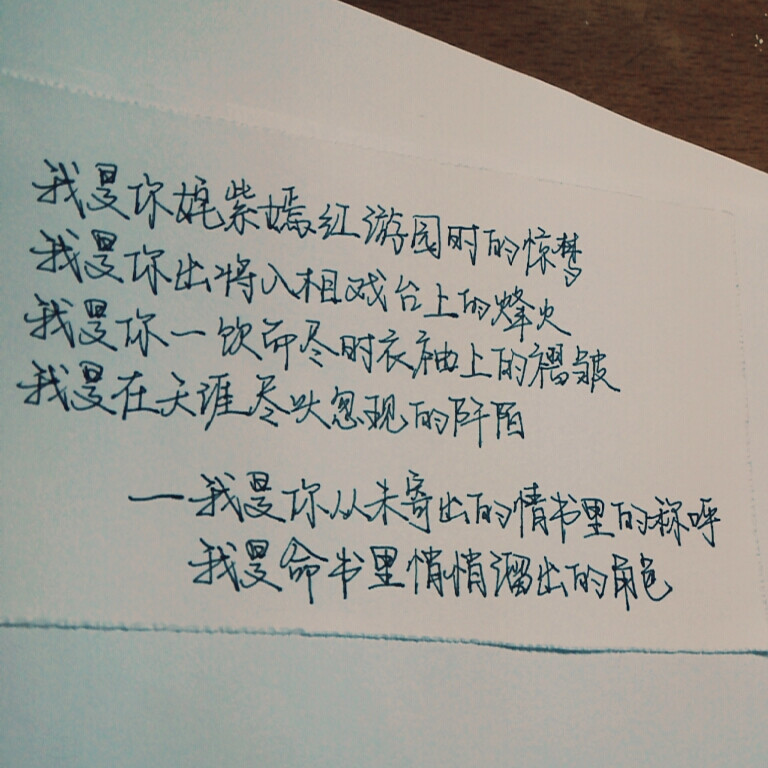 我是你姹紫嫣红游园时的惊梦
我是你出将入相戏台上的烽火
我是你一饮而尽时衣袖上的褶皱
我是在天涯尽头忽现的阡陌
一我是你从未寄出的情书里的称呼
我是命书里悄悄溜出的角色